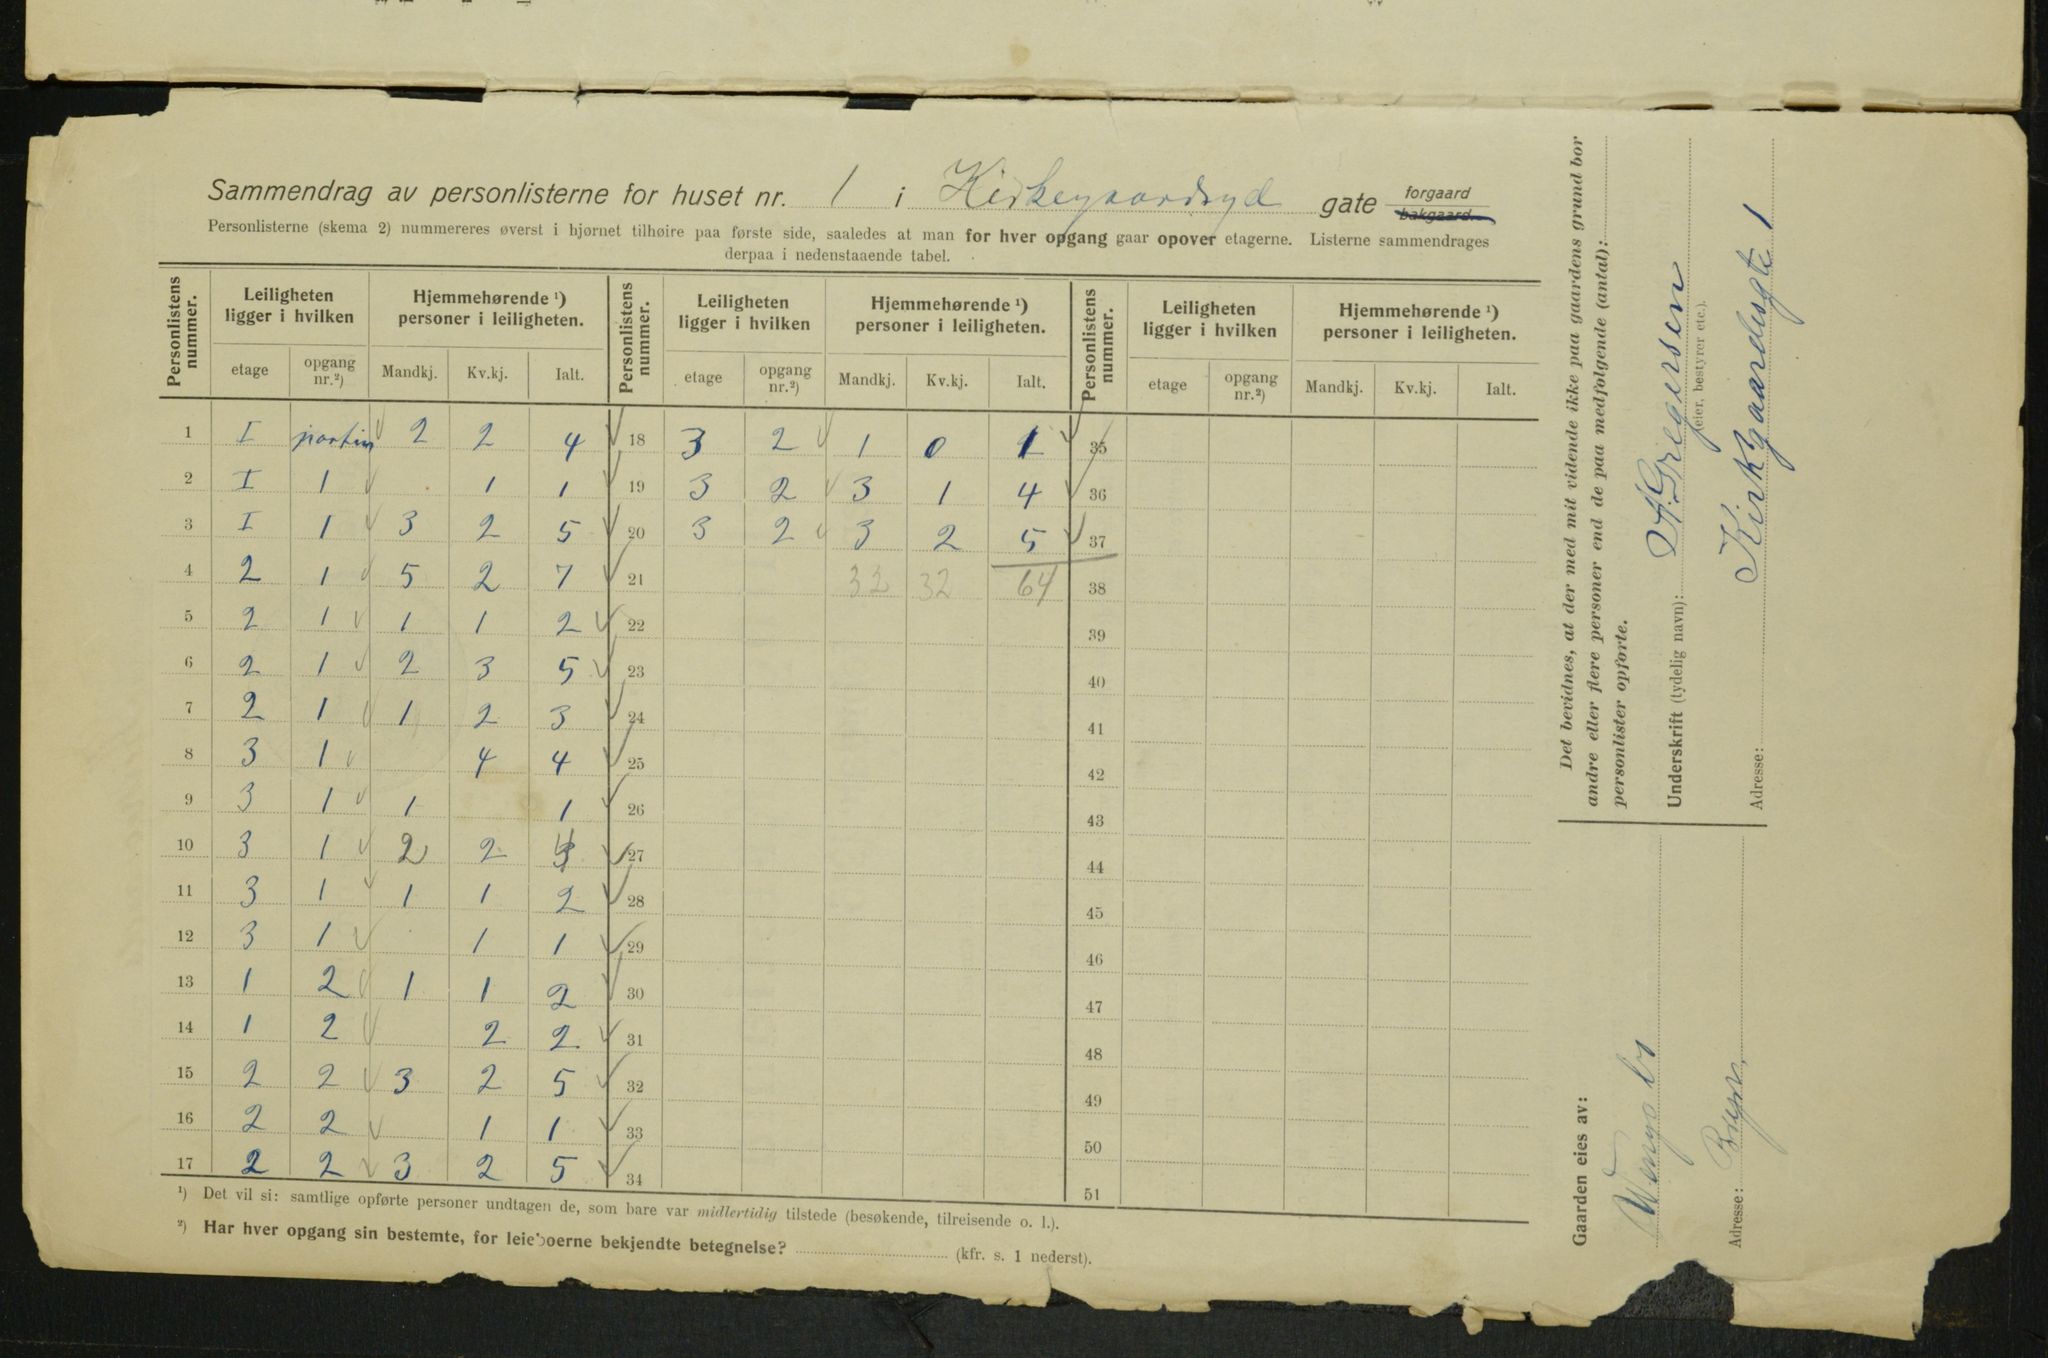 Sammendrag av personlisterne for huset nr. 1 i Kirkegaards gate forgaard bakgaard
Personlisterne (skema 2) nummereres øverst i bjørnet tilhøire paa første side, saaledes at man for hver opgang gaar opover etagerne. Listerne sammendrages
derpaa i nedenstaaende tabel.
Personlistens nummer. Leiligheten ligger i hvilken Hjemmehørende ¹) personer i leiligheten. Personlistens nummer. Leiligheten ligger i hvilken Hjemmehørende ¹) personer i leiligheten. Personlistens nummer. Leiligheten ligger i hvilken Hjemmehørende ¹) personer i leiligheten.
etage opgang nr.²) Mandkj. Kv.kj. Ialt. etage opgang nr.²) Mandkj. Kv.kj. Ialt. etage opgang nr.²) Mandkj. Kv.kj. Ialt.
1 I 2 2 4 18 3 2 1 0 1 35
2 I 1 1 1 19 3 2 3 1 4 36
3 I 1 3 2 5 20 3 2 3 2 5 37
4 2 1 5 2 7 21 32 32 64 38
5 2 1 1 1 2 22 39
6 2 1 2 3 5 23 40
7 2 1 1 2 3 24 41
8 3 1 4 4 25 42
9 3 1 1 1 26 43
10 3 1 2 2 4 27 44
11 3 1 1 1 2 28 45
12 3 1 1 1 29 46
13 1 2 1 1 2 30 47
14 1 2 2 2 31 48
15 2 2 3 2 5 32 49
16 2 2 1 1 33 50
17 2 2 3 2 5 34 51
¹) Det vil si: samtlige opførte personer undtagen de, som bare var midlertidig tilstede (besøkende, tilreisende o. l.).
²) Har hver opgang sin bestemte, for leieboerne bekjendte betegnelse? (kfr. s. 1 nederst).
Det bevidnes, at der med mit vidende ikke paa gaardens grund bor
andre eller flere personer end de paa medfølgende (antal):
personlister opførte.
Underskrift (tydelig navn): A. Gregersen
(eier, bestyrer etc.).
Adresse: Kirkgaardsgte 1
Gaarden eies av:
Adresse: